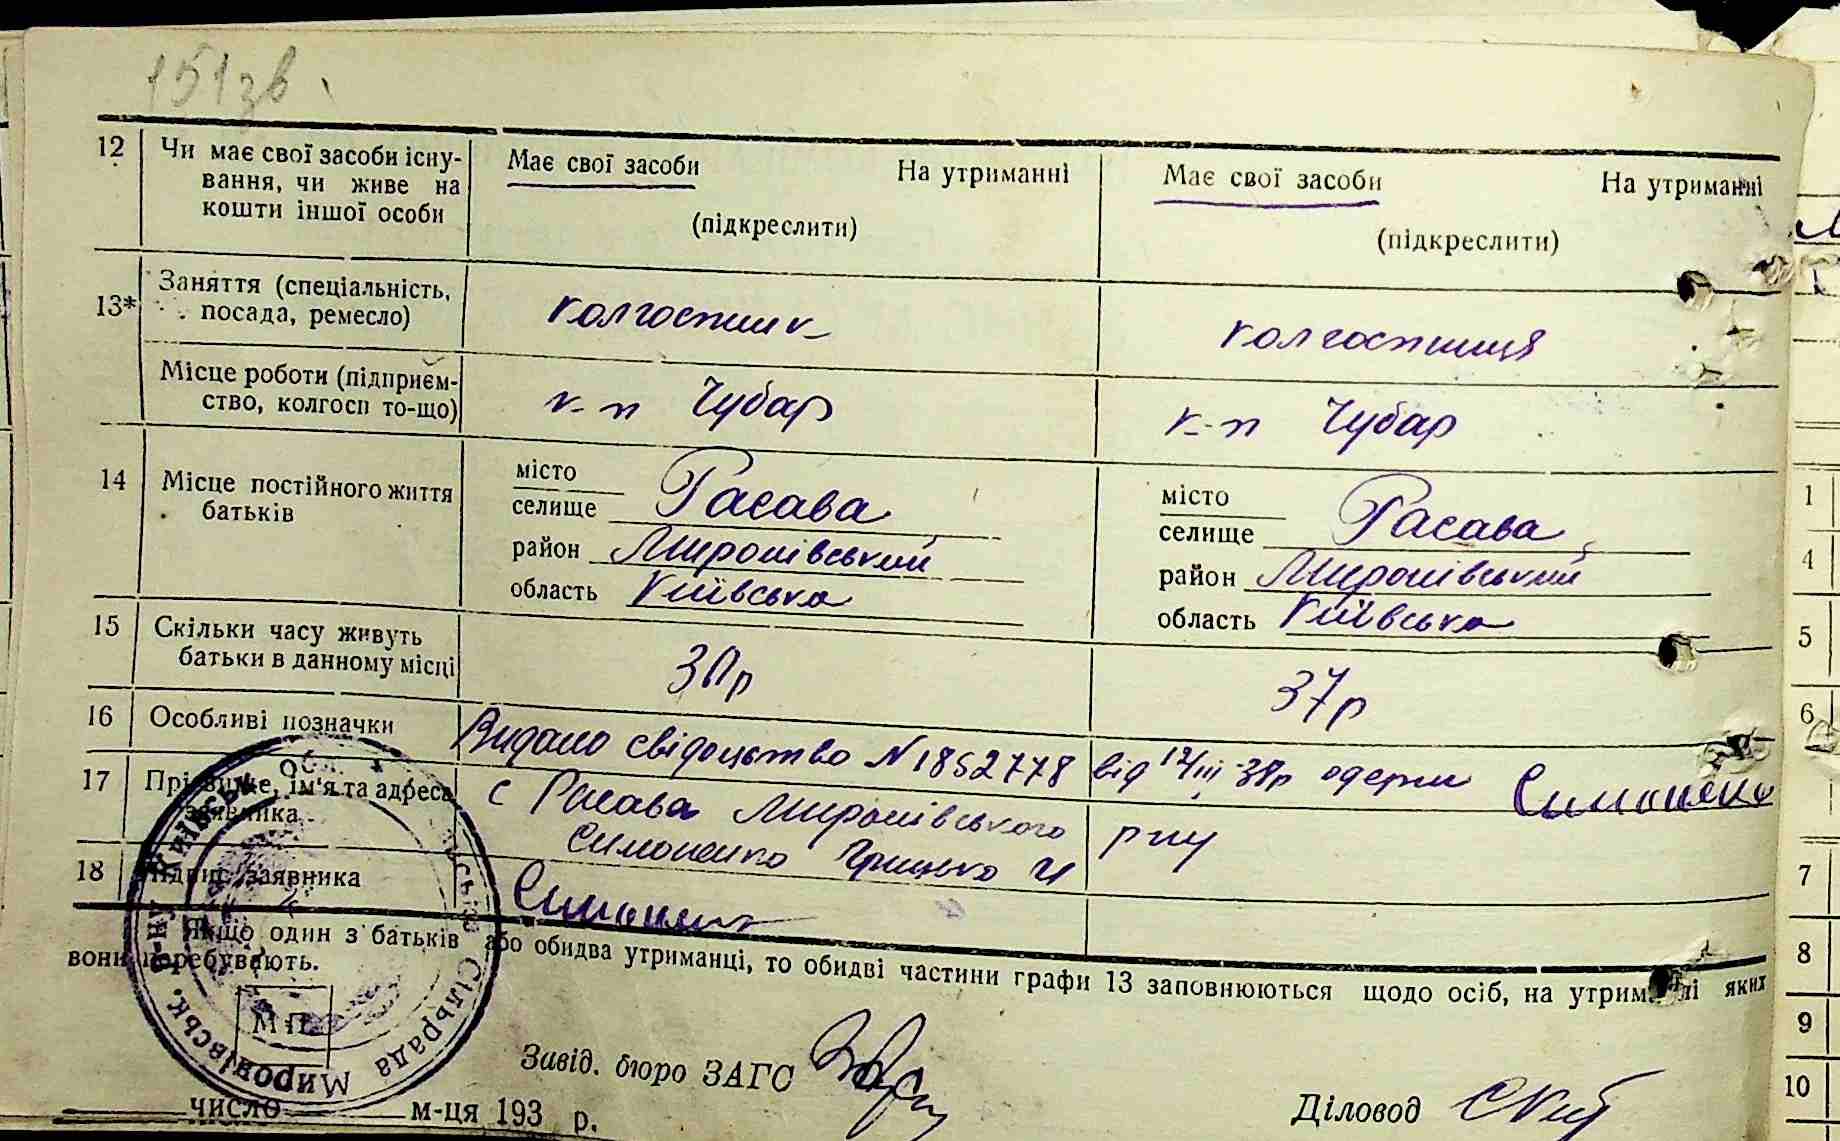 151зв.
12 Чи має свої засоби існу- Має свої засоби На утриманні Має свої засоби На утриманні
вання, чи живе на
кошти іншої особи (підкреслити) (підкреслити)
13* Заняття (спеціальність, колгоспник колгоспниця
посада, ремесло)
Місце роботи (підприєм- к-п Чубар к-п Чубар
ство, колгосп то-що)
14 Місце постійного життя місто місто
батьків селище Расава селище Расава
район Миронівський район Миронівський
область Київська область Київська
15 Скільки часу живуть
батьки в данному місці 37р
16 Особливі позначки Видано свідоцтво N 1852778 від одержи Симоненко
17 Прізвище, ім'я та адреса с Расава Миронівського рну
заявника Симоненко Грицько И
18 Підпис заявника Симонен
Якщо один з батьків або обидва утриманці, то обидві частини графи 13 заповнюються щодо осіб, на утриманні яких
вони перебувають.
М П
Сільрада Миронівськ. р-ну Київськ. Обл.
Завід. бюро ЗАГС
Діловод
число м-ця 193 р.
1
4
5
6
7
8
9
10